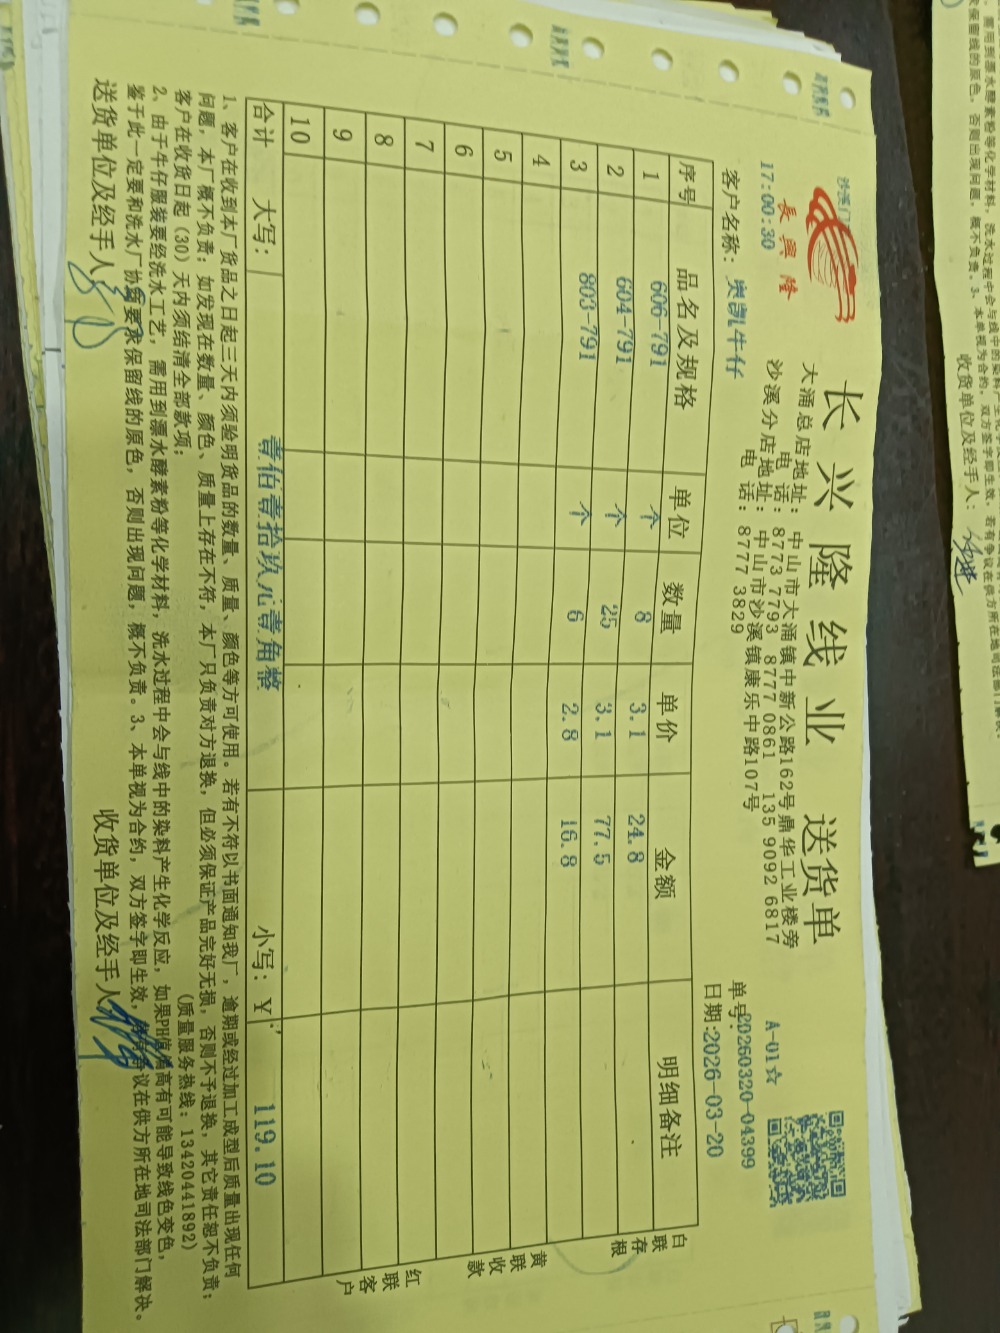 沙溪门
長興隆
17:00:30
长兴隆线业 送货单
大涌总店地址:中山市大涌镇中新公路162号鼎华工业楼旁
电话:8773 7793 8777 0861 135 9092 6817
沙溪分店地址:中山市沙溪镇康乐中路107号
电话:8777 3829
A-01☆
单号:20260320-04399
客户名称:奥凯牛仔
日期:2026-03-20
序号 品名及规格 单位 数量 单价 金额 明细备注
1 606-791 个 8 3.1 24.8
2 604-791 个 25 3.1 77.5
3 803-791 个 6 2.8 16.8
4
5
6
7
8
9
10
合计 大写: 壹佰壹拾玖元壹角整 小写:¥: 119.10
白联存根
黄联收款
红联客户
1、客户在收到本厂货品之日起三天内须验明货品的数量、质量、颜色等方可使用。若有不符以书面通知我厂,逾期或经过加工成型后质量出现任何
问题,本厂概不负责;如发现在数量、颜色、质量上存在不符,本厂只负责对方退换,但必须保证产品完好无损,否则不予退换,其它责任恕不负责;
客户在收货日起(30)天内须结清全部款项; (质量服务热线:13420441892)
2、由于牛仔服装要经洗水工艺,需用到漂水酵素粉等化学材料,洗水过程中会与线中的染料产生化学反应,如果PH值偏高有可能导致线色变色,
鉴于此一定要和洗水厂协商要求保留线的原色,否则出现问题,概不负责。3、本单视为合约,双方签字即生效,若有争议在供方所在地司法部门解决。
送货单位及经手人 收货单位及经手人
收货单位及经手人: